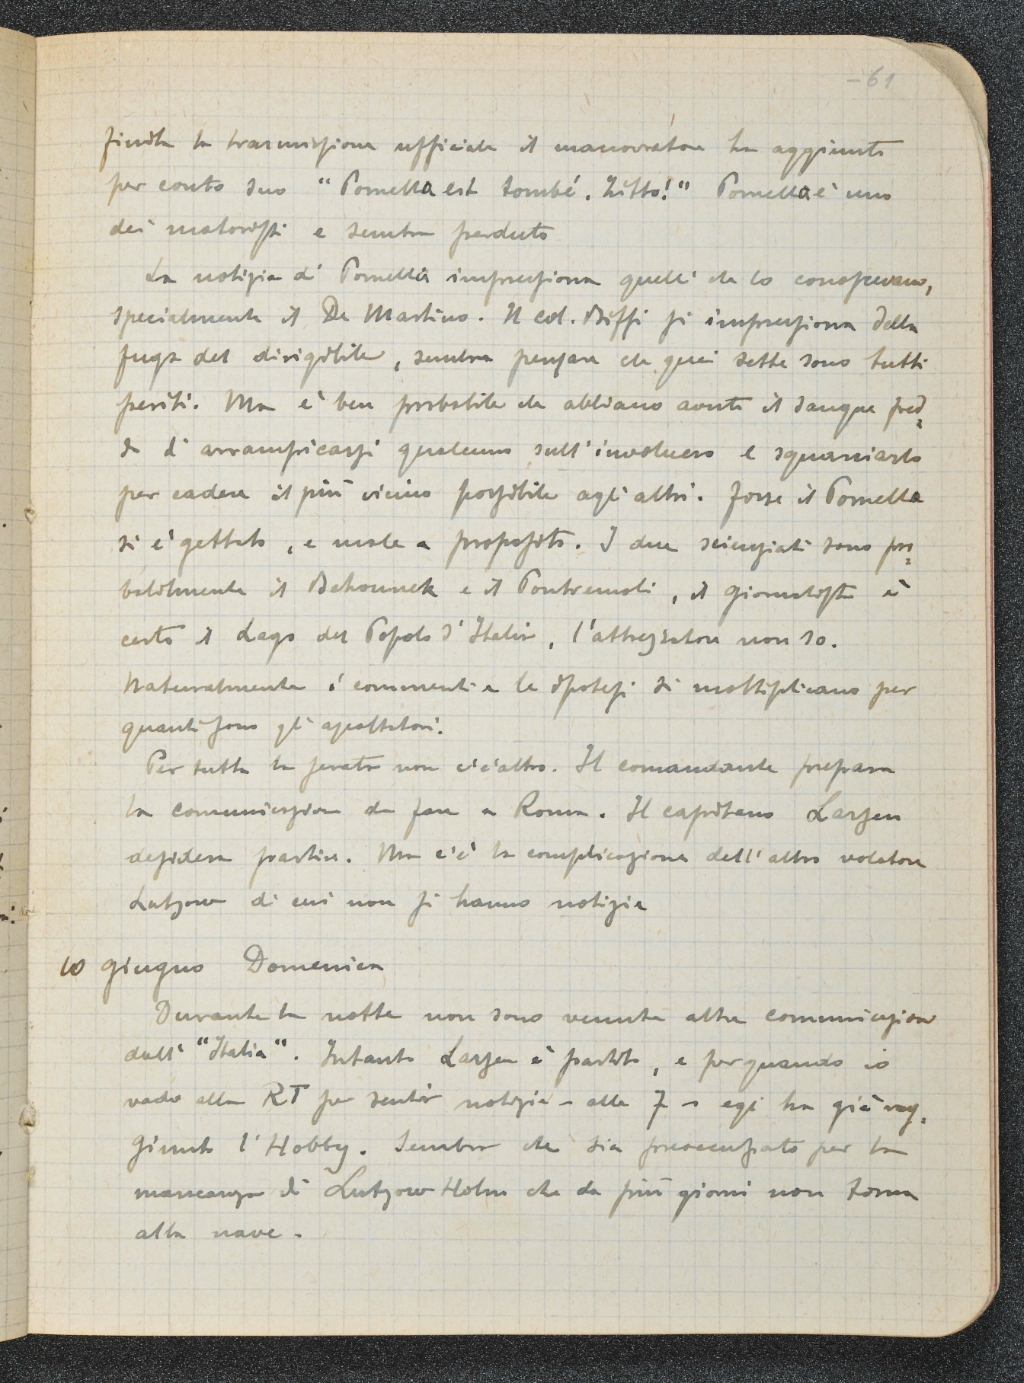 - 61
finita la trasmissione ufficiale il manovratore ha aggiunto
per conto suo "Pomella est tombé. Zitto!" Pomella è uno
dei motoristi e sembra perduto
La notizia di Pomella impressiona quelli che lo conoscevano,
specialmente il De Martino. Il col. Biffi si impressiona della
fuga del dirigibile, sembra pensare che quei sette sono tutti
periti. Ma è ben probabile che abbiano avuto il sangue fred=
do di arrampicarsi qualcuno sull'involucro e squarciarlo
per cadere il più vicino possibile agli altri. Forse il Pomella
si è gettato, e male a proposito. I due scienziati sono pro=
babilmente il Behounek e il Pontremoli, il giornalista è
certo il Lago del Popolo d'Italia, l'attrezzatore non so.
Naturalmente i commenti e le ipotesi si moltiplicano per
quanti sono gli ascoltatori.
Per tutta la serata non c'è altro. Il comandante prepara
la comunicazione da fare a Roma. Il capitano Larsen
desidera partire. Ma c'è la complicazione dell'altro volatore
Lutzow di cui non si hanno notizie
10 giugno Domenica
Durante la notte non sono venute altre comunicazioni
dall'"Italia". Intanto Larsen è partito, e per quando io
vado alla RT per sentir notizie - alle 7 - egli ha già rag=
giunto l'Hobby. Sembra che sia preoccupato per la
mancanza di Lutzow Holm che da più giorni non torna
alla nave.